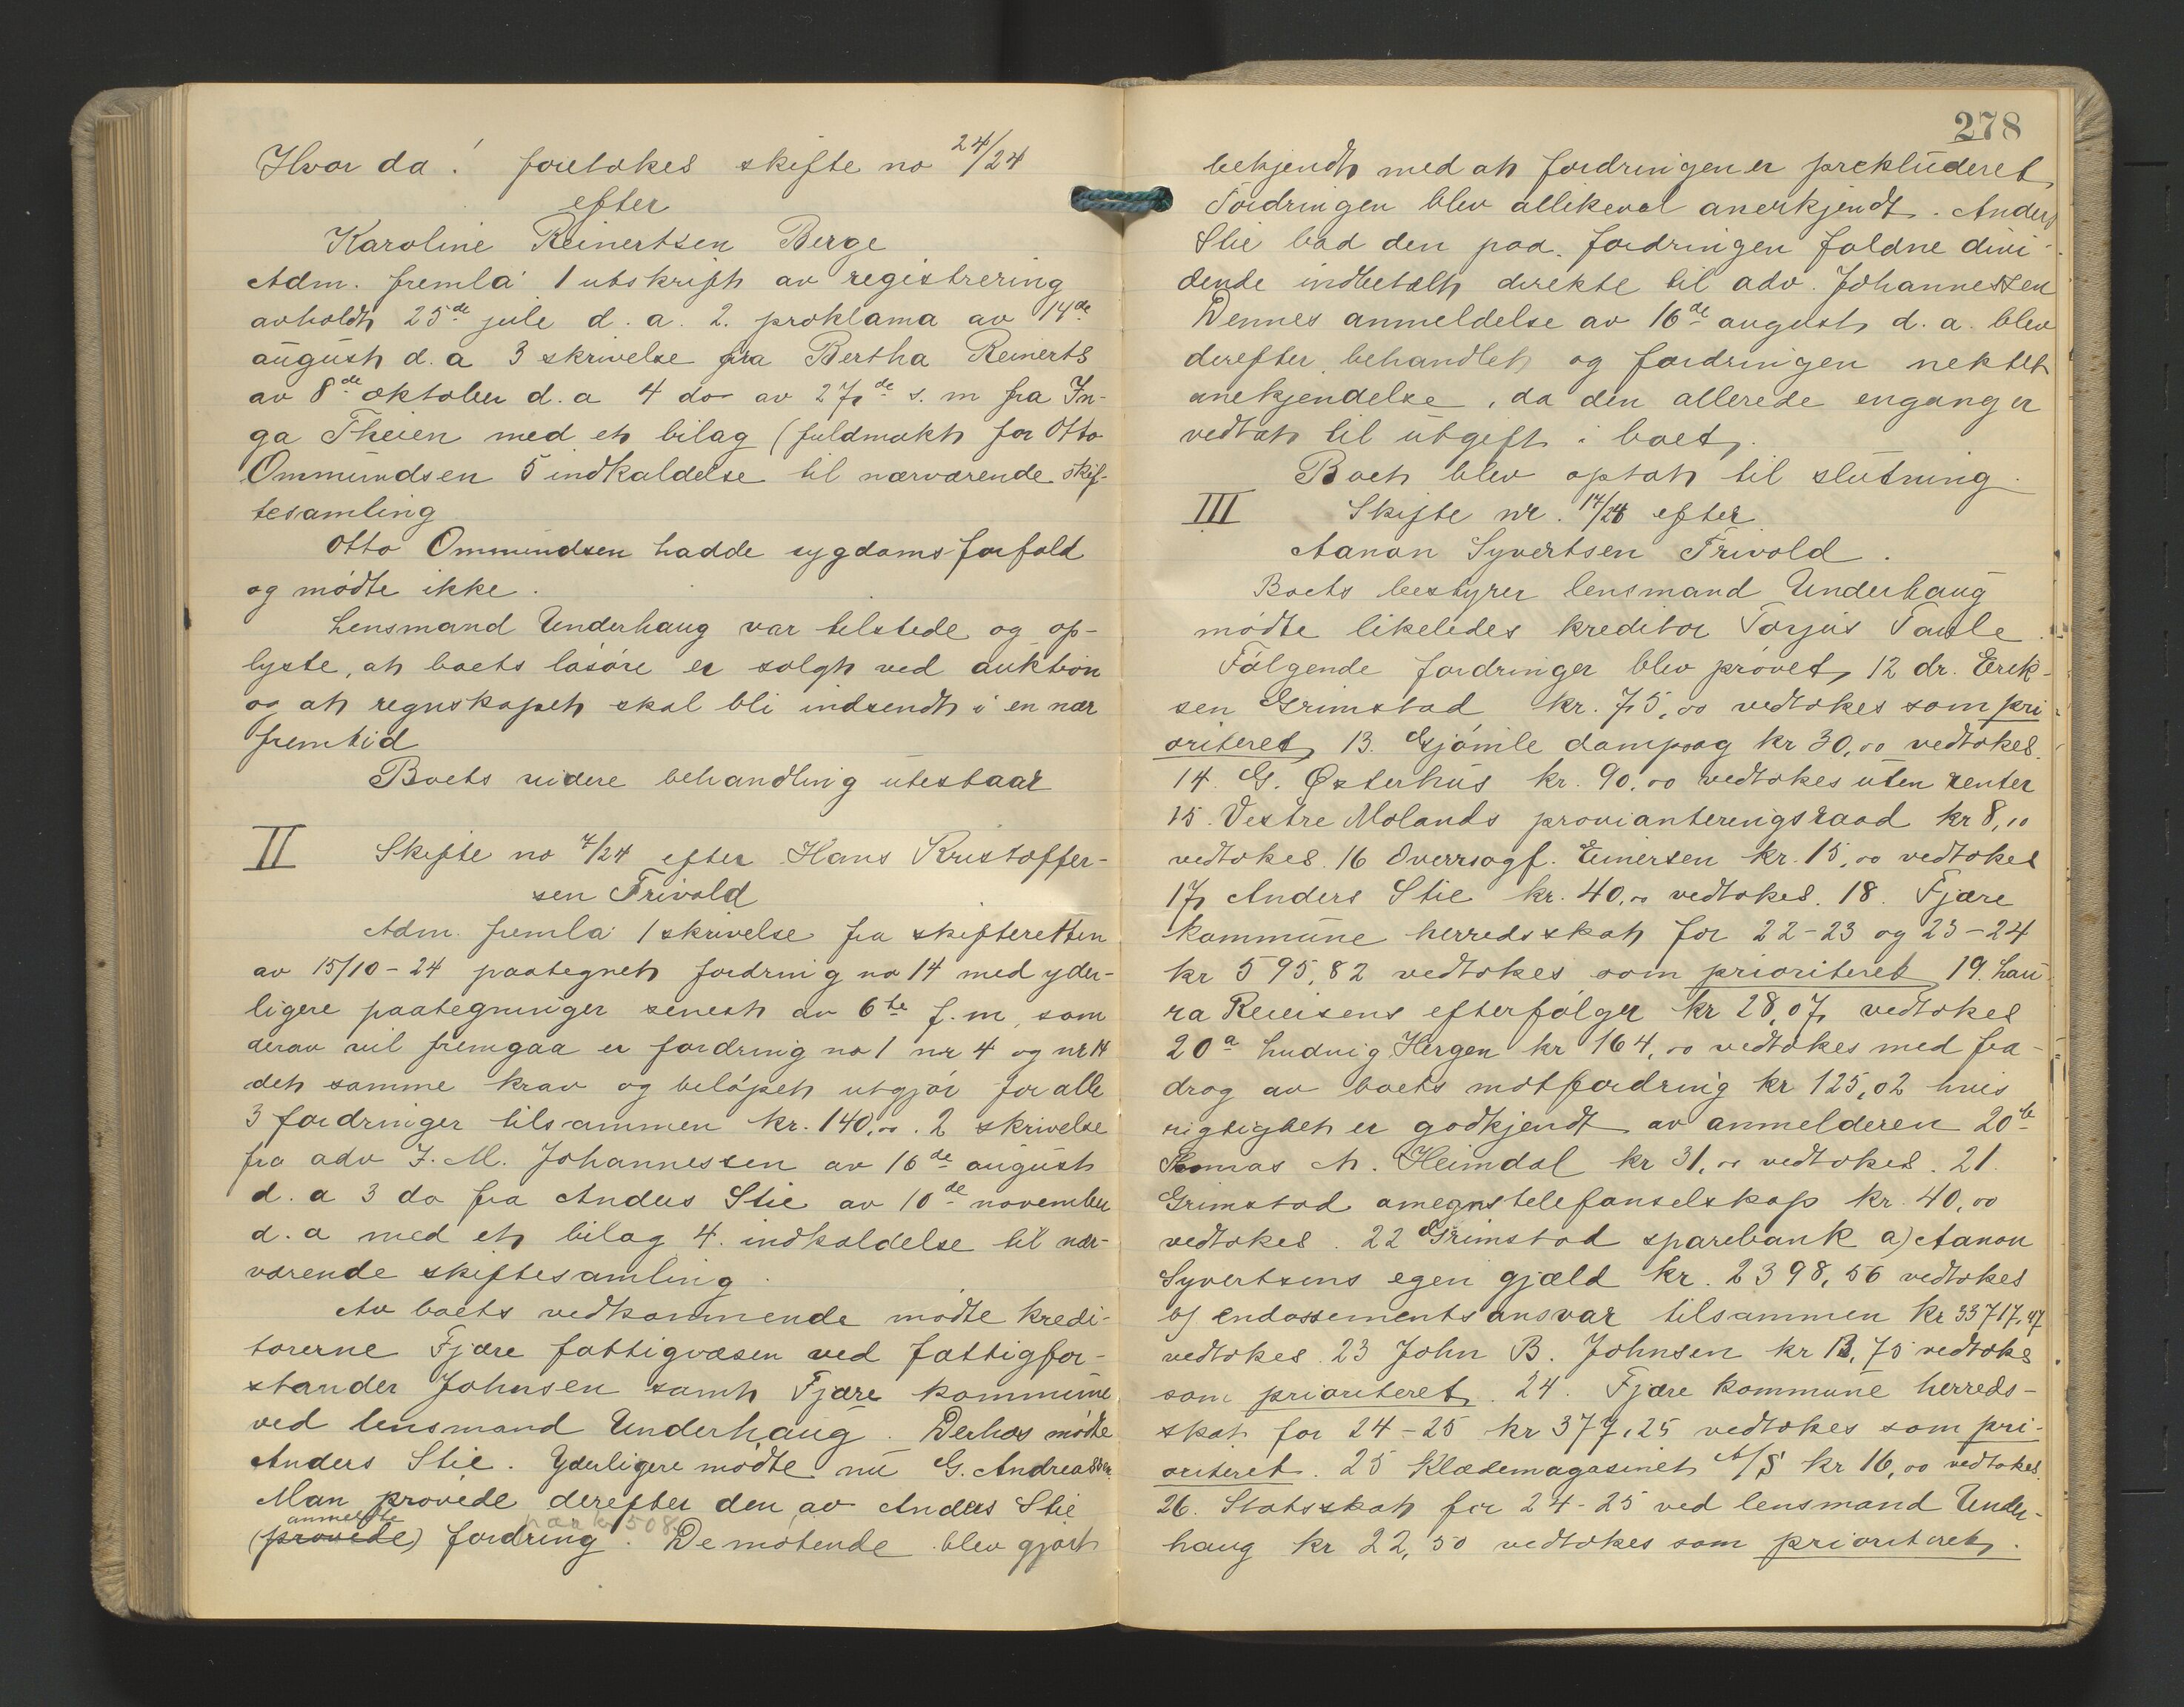 Hvor da! foretokes skifte no 24/24
efter
Karoline Reinertsen Berge
Adm. fremla 1 utskrift av registrering
avholdt 25de juli d. a. 2. proklama av 14de
august d. a 3 skrivelse fra Bertha Reinerts
av 8de oktober d. a 4 do av 27de s. m fra In-
ga Theien med et bilag (fuldmakt for Otto
Ommundsen 5 indkaldelse til nærværende skif-
tesamling
Otto Ommundsen hadde sygdomsforfald
og mødte ikke.
Lensmand Underhaug var tilstede og op-
lyste, at boets løsøre er solgt ved auktion
og at regnskapet skal bli indsendt i en nær
fremtid
Boets videre behandling utestaar
II Skifte no 7/24 efter Hans Kristoffer-
sen Frivold
Adm. fremla 1 skrivelse fra skifteretten
av 15/10-24 paategnet fordring no 14 med yder-
ligere paategninger senest av 6te f. m, som
derav vil fremgaa er fordring no 1 nr 4 og nr 14
det samme krav og beløpet utgjør for alle
3 fordringer tilsammen kr. 140,00. 2 skrivelse
fra adv J. M. Johannessen av 16de august
d. a 3 do fra Anders Stie av 10de november
d. a med et bilag 4. indkaldelse til nær-
værende skiftesamling.
Av boets vedkommende mødte kredi-
torerne Fjære fattigvæsen ved fattigfor-
stander Johnsen samt Fjære kommune
ved lensmand Underhaug. Derhos mødte
Anders Stie. Yderligere mødte nu G. Andreassen.
Man prøvede derefter den av Anders Stie
anmeldte paa kr 508
(prøvede) fordring. De møtende blev gjort
278
bekjendt med at fordringen er prekluderet
Fordringen blev allikevel anerkjendt. Anders
Stie bad den paa fordringen faldne divi-
dende indbetalt direkte til adv. Johannessen
Dennes anmeldelse av 16de august d. a. blev
derefter behandlet og fordringen nektet
anekjendelse, da den allerede engang er
vedtat til utgift i boet.
Boet blev optat til slutning.
III Skifte nr. 17/24 efter
Aanon Syvertsen Frivold.
Boets bestyrer lensmand Underhaug
mødte likeledes kreditor Torjus Taule.
Følgende fordringer blev prøvet, 12 dr. Erik-
sen Grimstad kr. 75,00 vedtokes som pri-
oriteret, 13. Gjømle dampsag kr 30,00 vedtokes.
14. G. Østerhus kr. 90,00 vedtokes uten renter
15. Vestre Molands provianteringsraad kr 8,10
vedtokes. 16 Overrsagf. Einersen kr. 15,00 vedtokes
17 Anders Stie kr. 40,00 vedtokes. 18. Fjære
kommune herredsskat for 22-23 og 23-24
kr 595,82 vedtokes som prioriteret 19. Lau-
ra Reiersens efterfølger kr 28,07 vedtokes
20a Ludvig Hergen kr 164,00 vedtokes med fra-
drag av boets motfordring kr 125,02 hvis
rigtighet er godkjendt av anmelderen 20b
Tomas A. Heimdal kr 31,00 vedtokes. 21.
Grimstad omegns telefonselskap kr. 40,00
vedtokes. 22 Grimstad sparebank a) Aanon
Syvertsens egen gjæld kr. 2398,56 vedtokes
b) endossementsansvar tilsammen kr 33717,47
vedtokes. 23 John B. Johnsen kr 13,75 vedtokes
som prioriteret. 24. Fjære kommune herreds-
skat for 24-25 kr 377,25 vedtokes som pri-
oriteret. 25 Klædemagasinet A/S kr 16,00 vedtokes.
26. Statsskat for 24-25 ved lensmand Under-
haug kr 22,50 vedtokes som prioriteret.